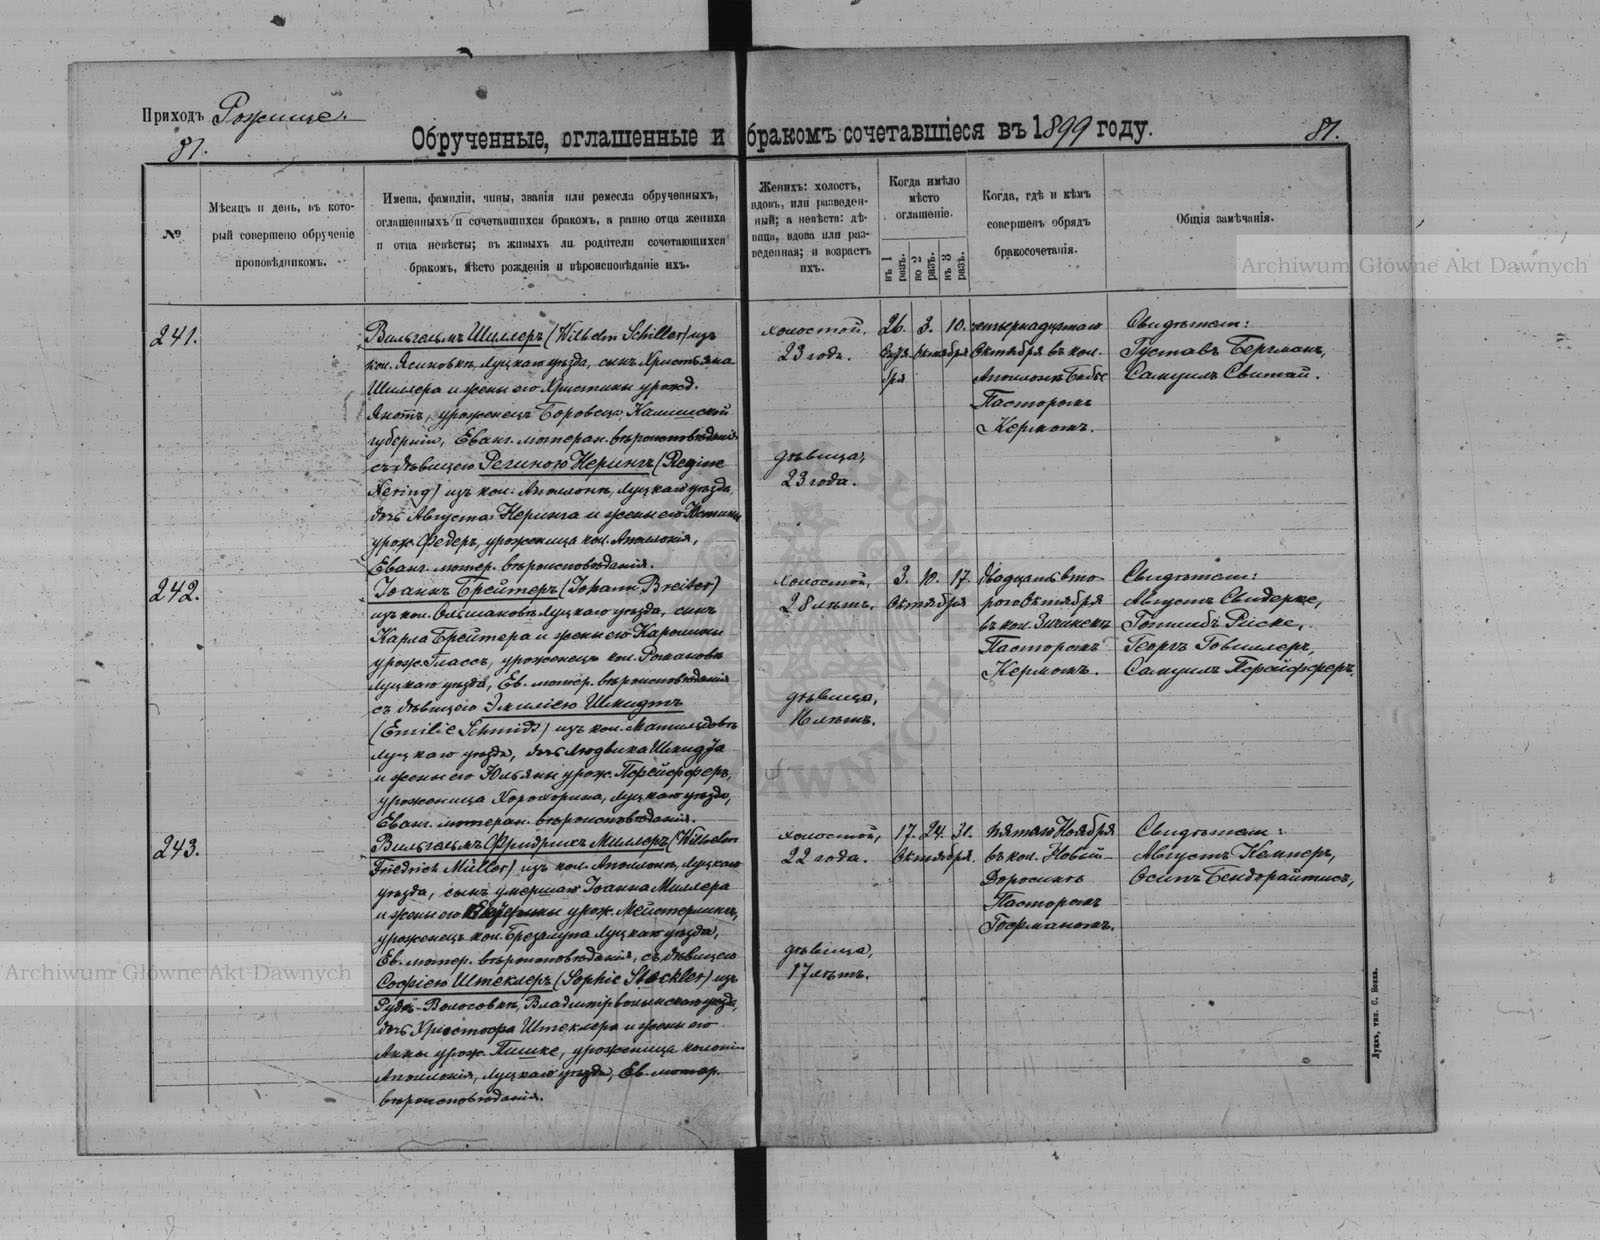 Приходъ Рожище.
81.
Обрученные, оглашенные и бракомъ сочетавшіеся въ 1899 году.
81.
№
Мѣсяцъ и день, въ кото-
рый совершено обрученіе
проповѣдникомъ.
Имена, фамиліи, чины, званія или ремесла обрученныхъ,
оглашенныхъ и сочетавшихся бракомъ, а равно отца жениха
и отца невѣсты; въ живыхъ ли родители сочетающихся
бракомъ, мѣсто рожденія и вѣроисповѣданіе ихъ.
Женихъ: холостъ,
вдовъ, или разведен-
ный; а невѣста: дѣ-
вица, вдова или раз-
веденная; и возрастъ
ихъ.
Когда имѣло
мѣсто
оглашеніе.
въ 1
разъ.
во 2
разъ.
въ 3
разъ.
Когда, гдѣ и кѣмъ
совершенъ обрядъ
бракосочетанія.
Общія замѣчанія.
Archiwum Główne Akt Dawnych
241.
Вильгельмъ Шиллеръ (Wilhelm Schiller) изъ
кол. Ясиновкъ, Луцкаго уѣзда, сынъ Христьяна
Шиллера и жены его Христины урожд.
Янотъ, уроженецъ Боровецъ Калишской
губерніи, Еванг. лютеран. вѣроисповѣданія
съ дѣвицею Региною Нерингъ (Regine
Nering) изъ кол. Аполонкъ, Луцкаго уѣзда,
дочь Августа Неринга и жены его Юстины
урож. Федеръ, уроженица кол. Аполонія,
Еванг. лютер. вѣроисповѣданія.
холостой,
23 годъ.
дѣвица,
23 года.
26. 3. 10.
Сентя- Октября
бря
четырнадцатаго
Октября въ кол.
Аполонкъ
Пасторомъ
Кермомъ.
Свидѣтели:
Густавъ Бергманъ,
Самуилъ Свитай.
242.
Іоаннъ Брейтеръ (Johann Breiter)
изъ кол. Олишковъ Луцкаго уѣзда, сынъ
Карла Брейтера и жены его Каролины
урож. Глассъ, уроженецъ кол. Романовъ
Луцкаго уѣзда, Ев. лютер. вѣроисповѣданія
съ дѣвицею Эмиліею Шмидтъ
(Emilie Schmidt) изъ кол. Матильдовъ
Луцкаго уѣзда, дочь Людвика Шмидта
и жены его Юльяны урож. Пфейфферъ,
уроженица Хорохорина, Луцкаго уѣзда,
Еванг. лютеран. вѣроисповѣданія.
холостой,
28 лѣтъ.
дѣвица,
16 лѣтъ.
3. 10. 17.
Октября
Двадцать вто-
рого Октября
въ кол.
Пасторомъ
Кермомъ.
Свидѣтели:
Августъ Свидерке,
Готлибъ Риске,
Георгъ Говиллеръ,
Самуилъ Пфейфферъ.
243.
Вильгельмъ Фридрихъ Миллеръ (Wilhelm
Friedrich Müller) изъ кол. Аполонкъ, Луцкаго
уѣзда, сынъ умершаго Іоанна Миллера
и жены его урож. Мейстерлингъ,
уроженецъ кол. Брезалупа Луцкаго уѣзда,
Ев. лютер. вѣроисповѣданія, съ дѣвицею
Софіею Штеклеръ (Sophie Stöckler) изъ
Рудкъ-Волосовкъ, Владимірволынскаго уѣзда,
дочь Христофа Штеклера и жены его
Анны урож. Пишке, уроженица колоніи
Аполонія, Луцкаго уѣзда, Ев. лютер.
вѣроисповѣданія.
холостой,
22 года.
дѣвица,
17 лѣтъ.
17. 24. 31.
Октября.
Пятаго Ноября
въ кол. Новый-
Доросинъ
Пасторомъ
Гофманомъ.
Свидѣтели:
Августъ Кемперъ,
Осипъ Бендорайтисъ,
Archiwum Główne Akt Dawnych
Луцкъ, тип. С. Бокка.